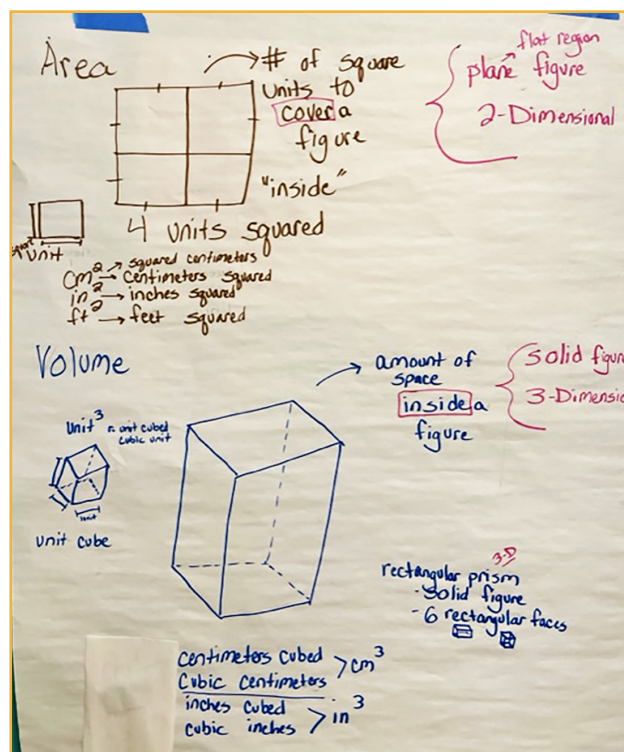 Area
# of square
units to
cover a
figure
"inside"
flat region
plane figure
2-Dimensional
4 units squared
unit
cm² → squared centimeters
→ centimeters squared
in² → inches squared
ft² → feet squared
Volume
amount of
space
inside a
figure
solid figure
3-Dimensio
unit³
unit cubed
cubic unit
unit
unit cube
3-D
rectangular prism
- solid figure
- 6 rectangular faces
centimeters cubed
cubic centimeters > cm³
inches cubed
cubic inches > in³